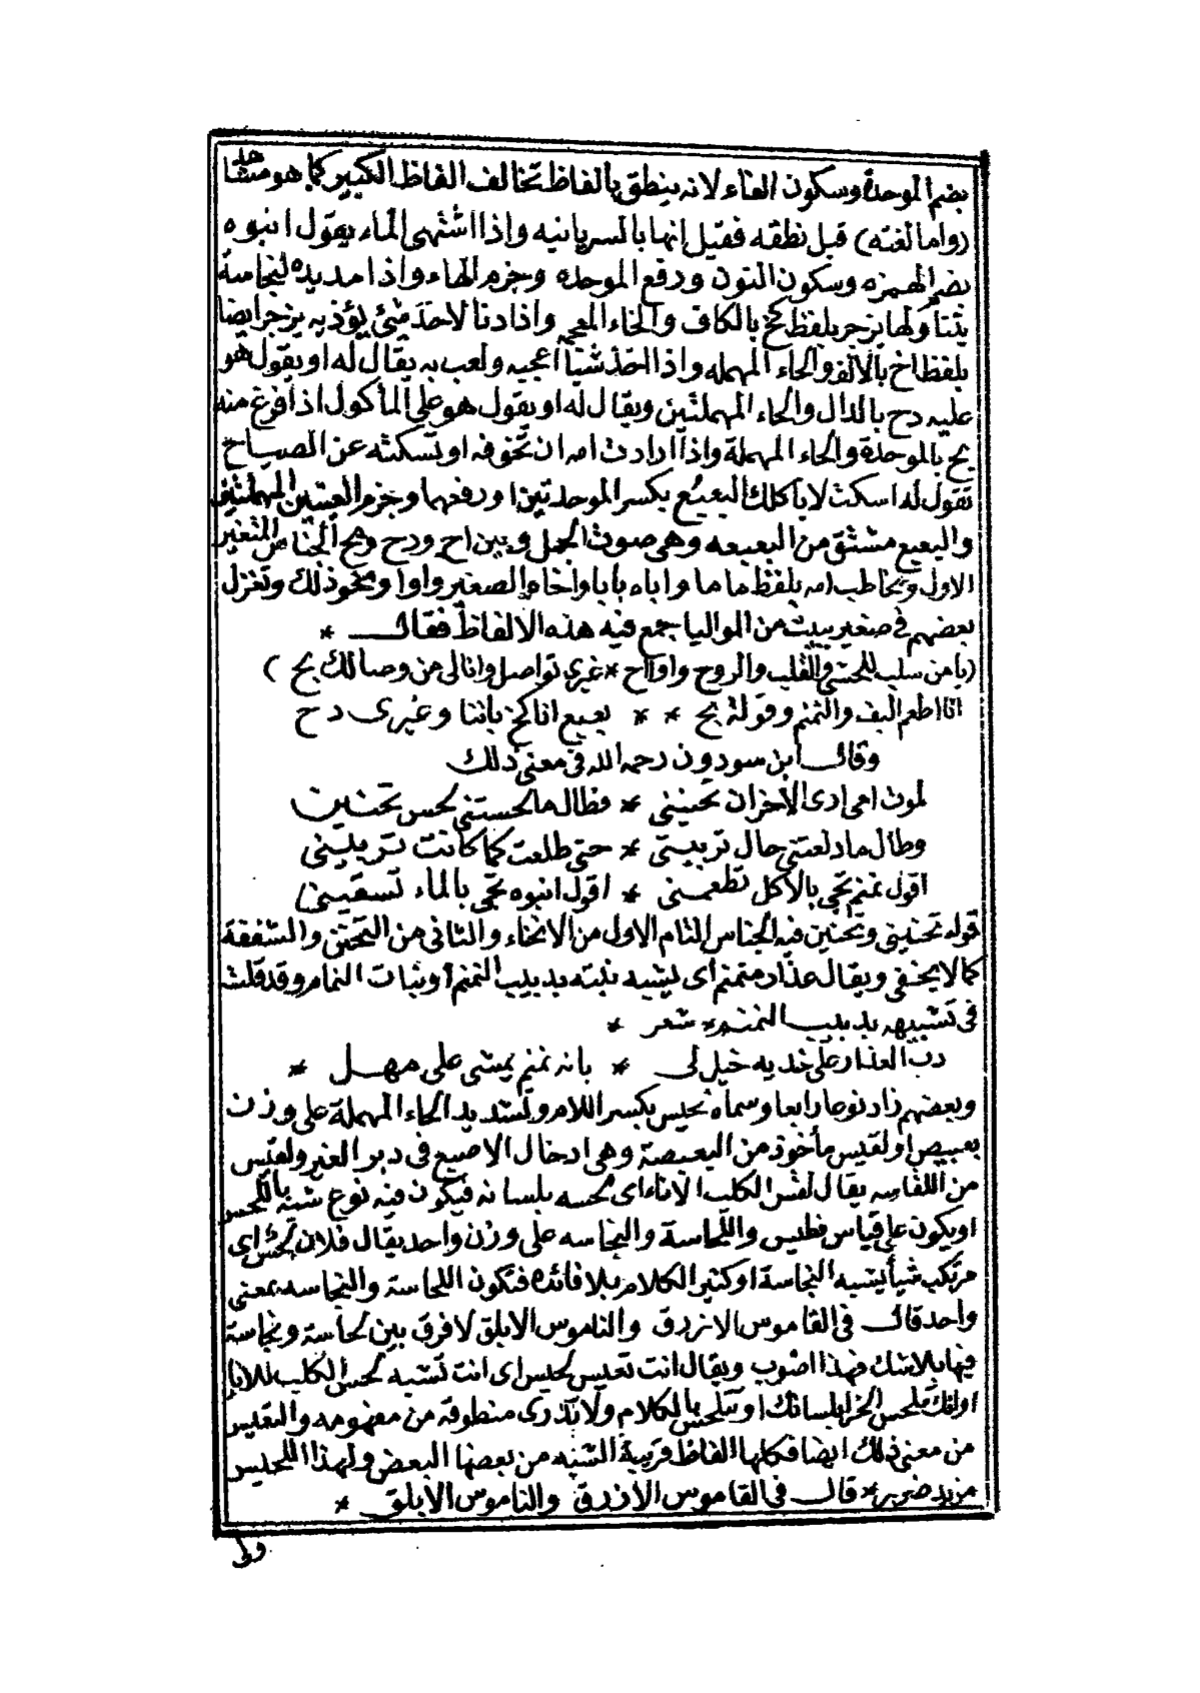 بضم الموحدة وسكون الفاء لانه ينطق بالفاظ تخالف الفاظ الكبير كما هو مشاهد
(واما لغته) قبل نطقه فقيل انها بالسريانيه واذا اشتهى الماء يقول انبوه
بضم الهمزه وسكون النون ورفع الموحده وجزم الهاء واذا مد يده لنجاسة
يتناولها يزجر بلفظ كخ بالكاف والخاء المعجمه واذا دنا لاخذ شئ يؤذيه يزجر ايضا
بلفظ اح بالالف والحاء المهمله واذا اخذ شيأ اعجبه ولعب به يقال له او يقول هو
عليه دح بالدال والحاء المهملتين ويقال له او يقول هو على المأكول اذا فرغ منه
بح بالموحدة والحاء المهملة واذا ارادت امه ان تخوفه او تسكته عن الصياح
تقول له اسكت لا ياكلك البعبع بكسر الموحدتين او رفعهما وجزم العينين المهملتين
والبعبع مشتق من البعبعه وهى صوت الجمل وبين اح ودح وبح الجناس المتغير
الاول ويخاطب امه بلفظ ماما واباه بابا واخاه الصغير واوا ونحو ذلك وتغزل
بعضهم فى صغير ببيت من المواليا جمع فيه هذه الالفاظ فقال *
(يا من سلب للحشى والقلب والروح واواح * غيرى تواصل وانا لى من وصالك بح)
انا اطعم البف والنمنم وقولة بح * * بعبع انا كخ ياننا وغيرى دح
وقال ابن سودون رحمه الله فى معنى ذلك
لموت امى ارى الاحزان تحنينى * فطالما لحستنى لحس تحنين
وطال ما دلعتنى حال تربيتى * حتى طلعت كما كانت تربينى
اقول نمنم تجى بالاكل تطعمنى * اقول انبوه تجى بالماء تسقينى
قوله تحنينى وتحنين فيه الجناس التام الاول من الانحناء والثانى من التحنن والشفقة
كما لا يخفى ويقال عذار منمنم اى يشبه نبته بدبيب النمنم او نبات النمام وقد قلت
فى تشبيهه بدبيب النمنم * شعر *
دب العذار على خديه خيل لى * بانه نمنم يمشى على مهل *
وبعضهم زاد نوعا رابعا وسماه لحيس بكسر اللام وتشديد الحاء المهملة على وزن
بعبيص او لقيس مأخوذ من البعبصة وهى ادخال الاصبع فى دبر الغير ولقيس
من اللقاسه يقال لقس الكلب الاناء اى لحسه بلسانه فيكون فيه نوع شبه باللحس
او يكون على قياس فطيس واللحاسة والنجاسه على وزن واحد يقال فلان لحس اى
مرتكب شيأ يشبه النجاسة او كثير الكلام بلا فائده فتكون اللحاسة والنجاسه بمعنى
واحد قال فى القاموس الازرق والناموس الابلق لا فرق بين لحاسة ونجاسة
فيها بلا شك فهذا اصوب ويقال انت تعيس لحيس اى انت تشبه لحس الكلب للاناء
اوانك تلحس الخرا بلسانك او تتلحس بالكلام ولا تدرى منطوقه من مفهومه والتعيس
من معنى ذلك ايضا فكلها الفاظ قريبة الشبه من بعضها البعض ولهذا اللحيس
مزيد ضرير * قال فى القاموس الازرق والناموس الابلق *